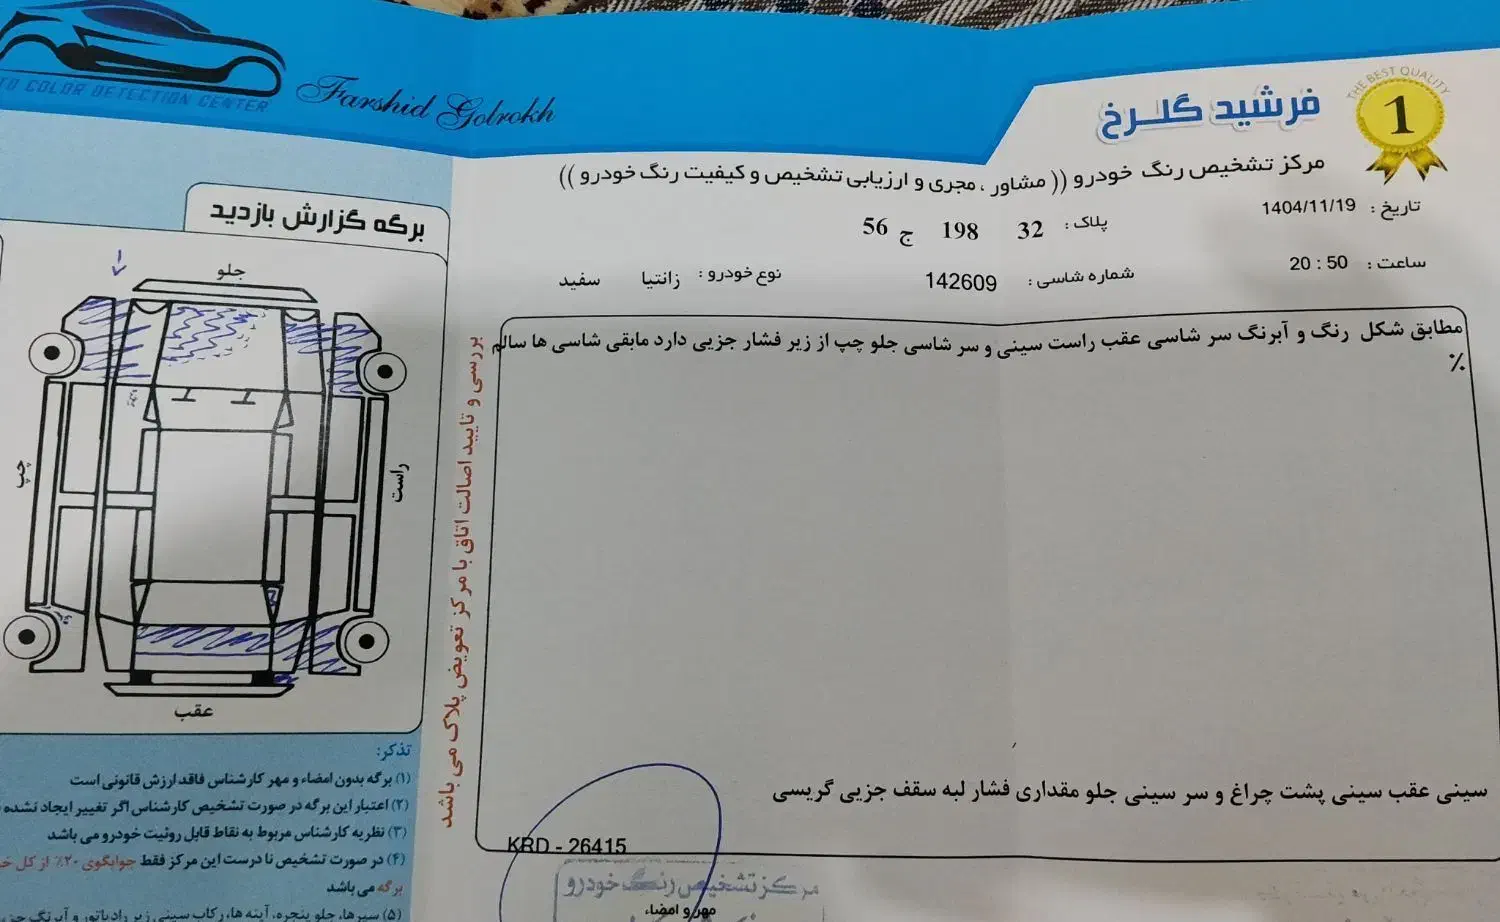 COLOR DETECTION CENTER
Farshid Golrokh
فرشید گلرخ
THE BEST QUALITY
1
مرکز تشخیص رنگ خودرو (( مشاور ، مجری و ارزیابی تشخیص و کیفیت رنگ خودرو ))
تاریخ : 1404/11/19
پلاک : 32 198 ج 56
ساعت : 20 : 50
شماره شاسی : 142609
نوع خودرو : زانتیا سفید
برگه گزارش بازدید
جلو
چپ
راست
عقب
بررسی و تایید اصالت اتاق با مرکز تعویض پلاک می باشد
مطابق شکل رنگ و آبرنگ سر شاسی عقب راست سینی و سر شاسی جلو چپ از زیر فشار جزیی دارد مابقی شاسی ها سالم
٪
سینی عقب سینی پشت چراغ و سر سینی جلو مقداری فشار لبه سقف جزیی گریسی
KRD - 26415
مرکز تشخیص رنگ خودرو
مهر و امضاء
تذکر:
۱) برگه بدون امضاء و مهر کارشناس فاقد ارزش قانونی است
۲) اعتبار این برگه در صورت تشخیص کارشناس اگر تغییر ایجاد نشده
۳) نظریه کارشناس مربوط به نقاط قابل روئیت خودرو می باشد
۴) در صورت تشخیص نادرست این مرکز فقط جوابگوی ۲۰٪ از کل
برگه می باشد
۵) سپرها، جلو پنجره، آینه ها، رکاب سینی زیر رادیاتور و آبرنگ